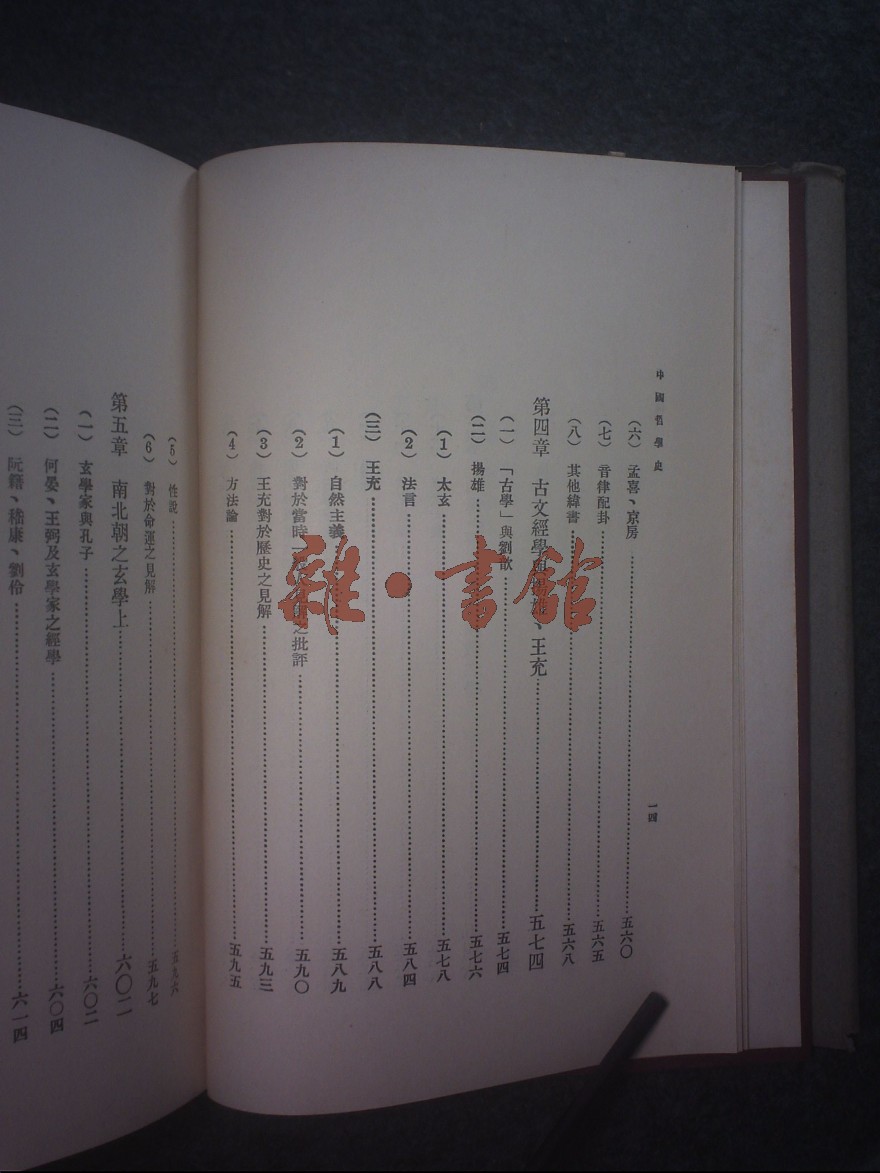 中國哲學史
一四
(六) 孟喜、京房……五六〇
(七) 音律配卦……五六五
(八) 其他緯書……五六八
第四章 古文經學與揚雄、王充……五七四
(一) 「古學」與劉歆……五七四
(二) 揚雄……五七六
(1) 太玄……五七八
(2) 法言……五八四
(三) 王充……五八八
(1) 自然主義……五八九
(2) 對於當時一般人見解之批評……五九〇
(3) 王充對於歷史之見解……五九三
(4) 方法論……五九五
(5) 性說……五九六
(6) 對於命運之見解……五九七
第五章 南北朝之玄學上……六〇二
(一) 玄學家與孔子……六〇二
(二) 何晏、王弼及玄學家之經學……六〇四
(三) 阮籍、嵇康、劉伶……六一四
雜·書館